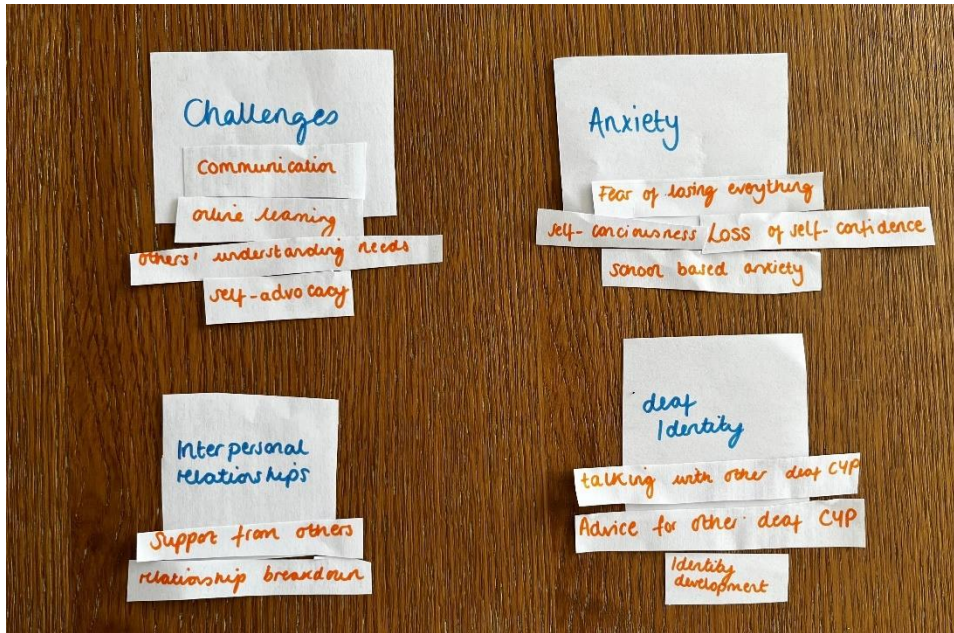 Challenges
communication
online learning
others' understanding needs
self-advocacy
Anxiety
Fear of losing everything
self-conciousness
Loss of self-confidence
school based anxiety
Interpersonal
relationships
Support from others
relationship breakdown
deaf
Identity
talking with other deaf CYP
Advice for other deaf CYP
Identity
development